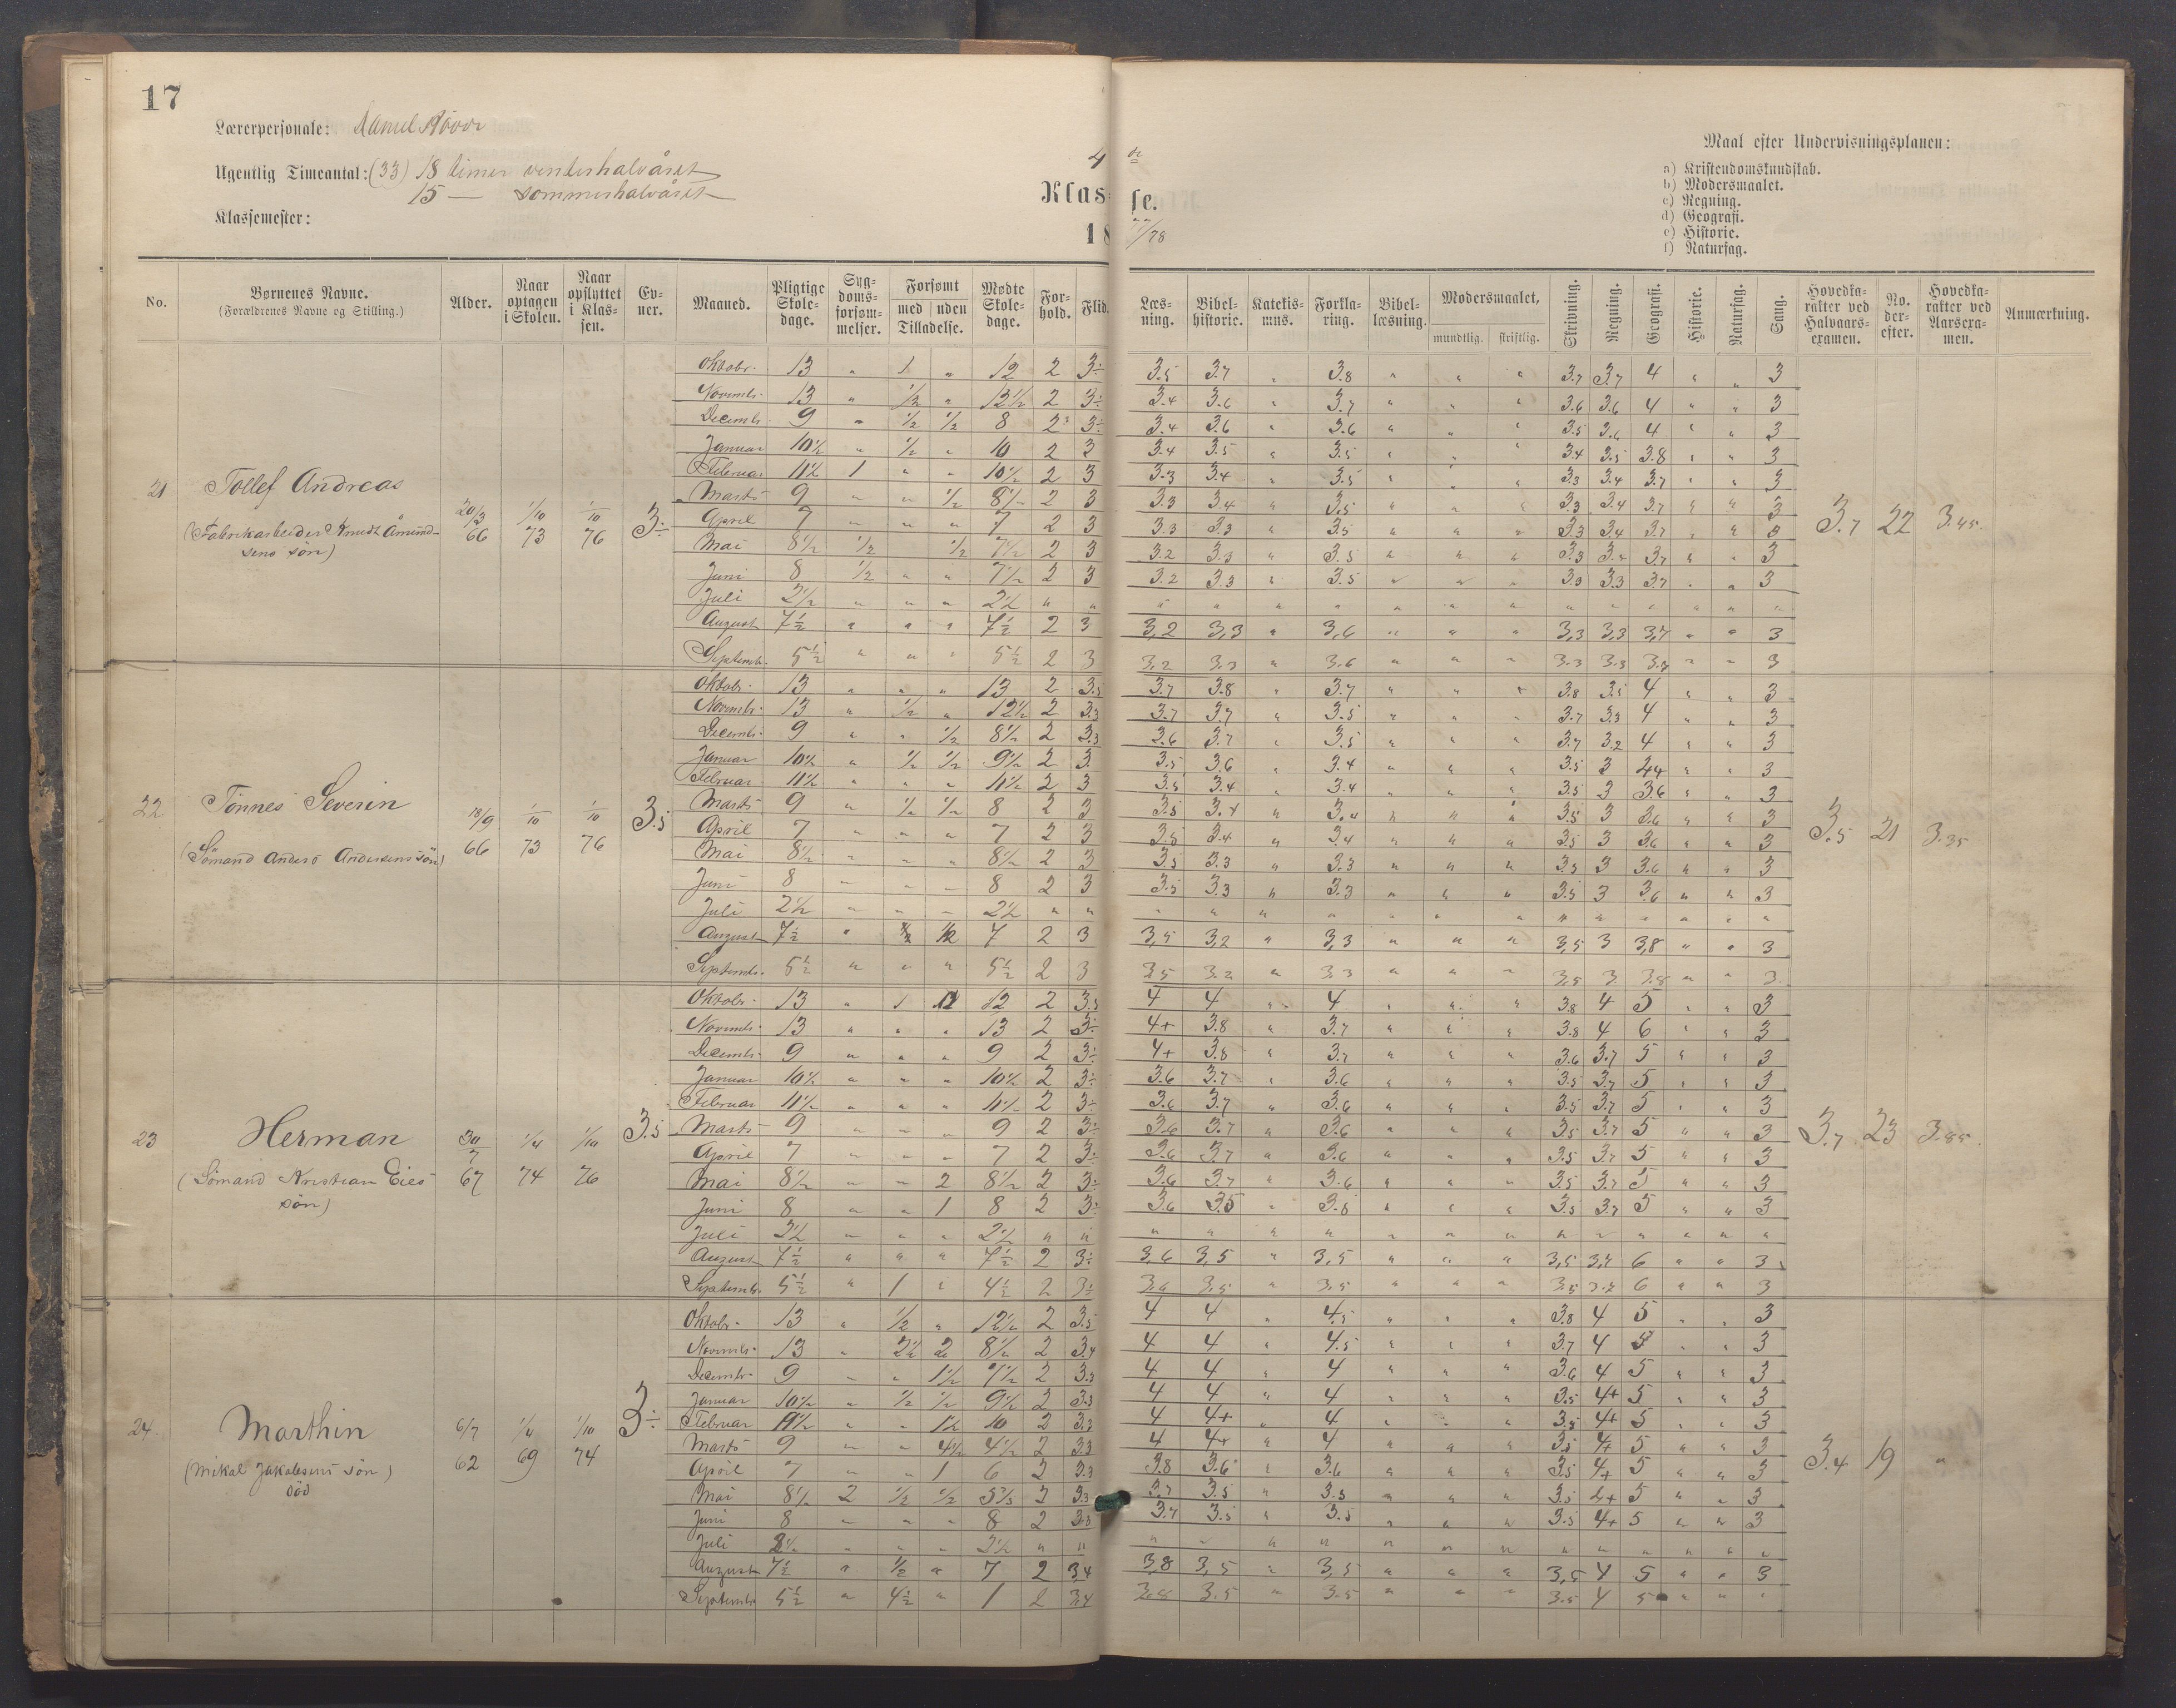 17
Lærerpersonale:
Ugentlig Timeantal: (33) 18 timer vinterhalvåret
15 — sommerhalvåret
Klassemester:
4 de
Klas- se.
18 77/78
Maal efter Undervisningsplanen:
a) Kristendomskundskab.
b) Modersmaalet.
c) Regning.
d) Geografi.
e) Historie.
f) Naturfag.
No. Børnenes Navne. (Forældrenes Navne og Stilling.) Alder. Naar optagen i Skolen. Naar opflyttet i Klassen. Evner. Maaned. Pligtige Skoledage. Sygdomsforsømmelser. Forsømt med uden Tilladelse. Mødte Skoledage. Forhold. Flid. Læsning. Bibelhistorie. Katekismus. Forklaring. Bibellæsning. Modersmaalet, mundtlig. skriftlig. Skrivning. Regning. Geografi. Historie. Naturfag. Sang. Hovedkarakter ved Halvaarsexamen. No. derefter. Hovedkarakter ved Aarsexamen. Anmærkning.
21 Tollef Andreas
(Fabrikarbeider Knudt Åmundsens søn)
20/3 66 1/10 73 1/10 76 3÷
Oktobr. 13 " 1 " 12 2 3÷ 3.5 3.7 " 3.8 " " " 3.7 3.7 4 " " 3
Novembr. 13 " 1/2 " 12 1/2 2 3÷ 3.4 3.6 " 3.7 " " " 3.6 3.6 4 " " 3
Decembr. 9 " 1/2 1/2 8 2 3÷ 3.4 3.6 " 3.6 " " " 3.5 3.6 4 " " 3
Januar 10 1/2 " 1/2 " 10 2 3 3.4 3.5 " 3.5 " " " 3.4 3.5 3.8 " " 3
Februar 11 1/2 1 " " 10 1/2 2 3 3.3 3.4 " 3.5 " " " 3.3 3.4 3.7 " " 3
Marts 9 " " 1/2 8 1/2 2 3 3.3 3.4 " 3.5 " " " 3.3 3.4 3.7 " " 3
April 7 " " " 7 2 3 3.3 3.3 " 3.5 " " " 3.3 3.4 3.7 " " 3
Mai 8 1/2 1/2 1/2 7 1/2 2 3 3.2 3.3 " 3.5 " " " 3.3 3.4 3.7 " " 3
Juni 8 1/2 " " 7 1/2 2 3 3.2 3.3 " 3.5 " " " 3.3 3.3 3.7 " " 3
Juli 2 1/2 " " " 2 1/2 " " " " " " " " " " " " " " "
August 7 1/2 " " " 7 1/2 2 3 3,2 3,3 " 3,6 " " " 3,3 3,3 3,7 " " 3
Septembr. 5 1/2 " " " 5 1/2 2 3 3.2 3.3 " 3.6 " " " 3.3 3.3 3.7 " " 3
3.7 22 3.45.
22 Tønnes Severin
(Sømand Anders Andersens søn)
18/9 66 1/10 73 1/10 76 3.5
Oktobr. 13 " " " 13 2 3.5 3.7 3.8 " 3.7 " " " 3.8 3.5 4 " " 3
Novembr. 13 " 1/2 " 12 1/2 2 3.3 3.7 3.7 " 3.5 " " " 3.7 3.3 4 " " 3
Decembr. 9 " " 1/2 8 1/2 2 3.3 3.6 3.7 " 3.5 " " " 3.7 3.2 4 " " 3
Januar 10 1/2 " 1/2 1/2 9 1/2 2 3 3.5 3.6 " 3.4 " " " 3.5 3 " " 3
Februar 11 1/2 " " " 11 1/2 2 3 3.5 3.4 " 3.4 " " " 3.5 3 3.6 " " 3
Marts 9 " 1/2 1/2 8 2 3 3.5 3.4 " 3.4 " " " 3.5 3 3.6 " " 3
April 7 " " " 7 2 3 3.5 3.4 " 3.4 " " " 3.5 3 3.6 " " 3
Mai 8 1/2 " " " 8 1/2 2 3 3.5 3.3 " 3.3 " " " 3.5 3 3.6 " " 3
Juni 8 " " " 8 2 3 3.5 3.3 " 3.3 " " " 3.5 3 3.6 " " 3
Juli 2 1/2 " " " 2 1/2 " " " " " " " " " " " " " " "
August 7 1/2 " 1/2 7 2 3 3,5 3,2 " 3,3 " " " 3,5 3 3,8 " " 3
Septembr. 5 1/2 " " " 5 1/2 2 3 3.5 3.2 " 3.3 " " " 3.5 3 3.8 " " 3
3.5 21 3.35
23 Herman
(Sømand Kristian Eies søn)
30/7 67 1/4 74 1/10 76 3.5
Oktobr. 13 " 1 12 2 3.5 4 4 " 4 " " " 3.8 4 5 " " 3
Novembr. 13 " " " 13 2 3÷ 4+ 3.8 " 3.7 " " " 3.8 4 6 " " 3
Decembr. 9 " " " 9 2 3÷ 4+ 3.8 " 3.7 " " " 3.6 3.7 5 " " 3
Januar 10 1/2 " " " 10 1/2 2 3÷ 3.6 3.7 " 3.6 " " " 3.5 3.7 5 " " 3
Februar 11 1/2 " " " 11 1/2 2 3÷ 3.6 3.7 " 3.6 " " " 3.5 3.7 5 " " 3
Marts 9 " " " 9 2 3÷ 3.6 3.7 " 3.6 " " " 3.5 3.7 5 " " 3
April 7 " " " 7 2 3÷ 3.6 3.7 " 3.6 " " " 3.5 3.7 5 " " 3
Mai 8 1/2 " " 2 8 1/2 2 3÷ 3.6 3.7 " 3.6 " " " 3.5 3.7 5 " " 3
Juni 8 " " 1 8 2 3÷ 3.6 3.5 " " " " 3.5 3.7 5 " " 3
Juli 2 1/2 " " " 2 1/2 " " " " " " " " " " " " " " "
August 7 1/2 " " " 7 1/2 2 3÷ 3,6 3,5 " 3,5 " " " 3,5 3,7 6 " " 3
Septembr. 5 1/2 " 1 " 4 1/2 2 3÷ 3.6 3.5 " 3.5 " " " 3.5 3.7 6 " " 3
3.7 23 3.85.
24. Marthin
(Mikal Jakobsens søn)
6/7 62 1/4 69 1/10 74 3÷
Oktobr. 13 " 1/2 " 12 1/2 2 3.5 4 4 " 4.5 " " " 3.8 4 5 " " 3
Novembr. 13 " 2 1/2 2 8 1/2 2 3.4 4 4 " 4.5 " " " 3.7 4 5 " " 3
Decembr. 9 " " 1 1/2 7 1/2 2 3.3 4 4 " 4 " " " 3.6 4 5 " " 3
Januar 10 1/2 " 1/2 1/2 9 1/2 2 3.3 4 4 " 4 " " " 3.5 4+ 5 " " 3
Februar 11 1/2 " " 1 1/2 10 2 3.3 4 4+ " 4 " " " 3.5 4+ 5 " " 3
Marts 9 " " 4 1/2 4 1/2 2 3.3 4 4+ " 4 " " " 3.5 4+ 5 " " 3
April 7 " " 1 6 2 3.3 3.8 3.6 " 3.6 " " " 3.5 4+ 5 " " 3
Mai 8 1/2 2 1/2 1/2 2 3.3 3.7 3.5 " 3.5 " " " 3.5 4+ 5 " " 3
Juni 8 " " " 8 2 3.3 3.7 3.5 " 3.5 " " " 3.5 4+ 5 " " 3
Juli 2 1/2 " " " 2 1/2 " " " " " " " " " " " " " " "
August 7 1/2 " 1/2 " 7 2 3.4 3,8 3,5 " 3,5 " " " 3,5 4 5 " " 3
Septembr 5 1/2 " 4 1/2 " 1 2 3.4 3.8 3.5 " 3.5 " " " 3.5 4 5 " " "
3.4 19 "